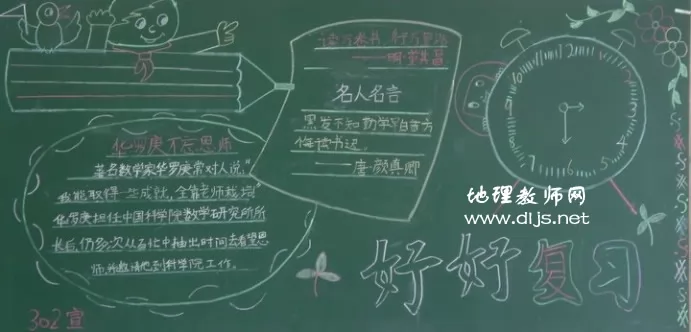 读万卷书 行万里路
——明·董其昌
名人名言
黑发不知勤学早白首方
悔读书迟。
——唐·颜真卿
华罗庚不忘恩师
著名数学家华罗庚常对人说,"
我能取得一些成就,全靠老师栽培
华罗庚担任中国科学院数学研究所所
长后,仍多次从百忙中抽出时间去看望恩
师,并邀请他到科学院工作。
12
1
2
3
4
5
6
7
8
9
10
11
地理教师网
www.dljs.net
好好复习
302宣